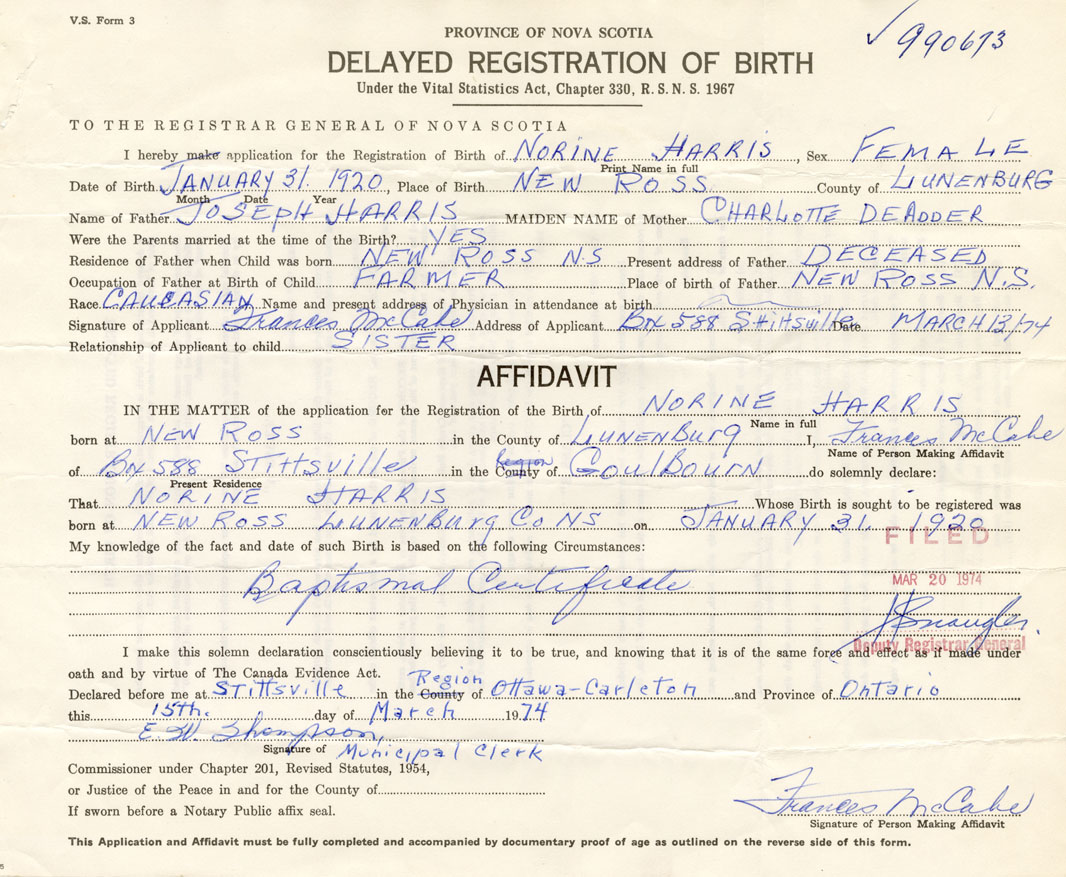 V.S. Form 3
✓ 990673
PROVINCE OF NOVA SCOTIA
DELAYED REGISTRATION OF BIRTH
Under the Vital Statistics Act, Chapter 330, R.S.N.S. 1967
TO THE REGISTRAR GENERAL OF NOVA SCOTIA
I hereby make application for the Registration of Birth of NORINE HARRIS, Sex FEMALE
Print Name in full
Date of Birth JANUARY 31. 1920, Place of Birth NEW ROSS County of LUNENBURG
Month Date Year
Name of Father JOSEPH HARRIS MAIDEN NAME of Mother CHARLOTTE DEADDER
Were the Parents married at the time of the Birth? YES
Residence of Father when Child was born NEW ROSS N.S Present address of Father DECEASED
Occupation of Father at Birth of Child FARMER Place of birth of Father NEW ROSS N.S.
Race CAUCASIAN Name and present address of Physician in attendance at birth
Signature of Applicant Frances McCabe Address of Applicant Box 588 Stittsville Date MARCH 13/74
Relationship of Applicant to child SISTER
AFFIDAVIT
IN THE MATTER of the application for the Registration of the Birth of NORINE HARRIS
Name in full
born at NEW ROSS in the County of LUNENBURG I, Frances McCabe
Name of Person Making Affidavit
of Box 588 Stittsville in the County of GOULBOURN do solemnly declare:
Present Residence
That NORINE HARRIS Whose Birth is sought to be registered was
born at NEW ROSS LUNENBURG Co NS on JANUARY 31. 1920
FILED
My knowledge of the fact and date of such Birth is based on the following Circumstances:
Baptsmal Certificate
MAR 20 1974
Deputy Registrar General
I make this solemn declaration conscientiously believing it to be true, and knowing that it is of the same force and effect as if made under
oath and by virtue of The Canada Evidence Act.
Region
Declared before me at Stittsville in the County of Ottawa-Carleton and Province of Ontario
this 15th. day of March 1974
E W Thompson,
Signature of Municipal Clerk
Commissioner under Chapter 201, Revised Statutes, 1954,
or Justice of the Peace in and for the County of
If sworn before a Notary Public affix seal.
Frances McCabe
Signature of Person Making Affidavit
This Application and Affidavit must be fully completed and accompanied by documentary proof of age as outlined on the reverse side of this form.
5